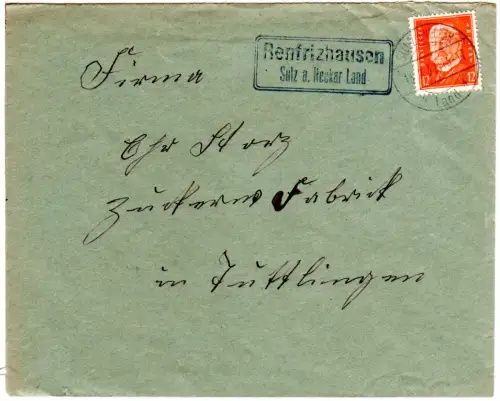 Renfrizhausen
Sulz a. Neckar Land
12 12
Firma
Chr Storz
Zuckerw Fabrick
in Tuttlingen